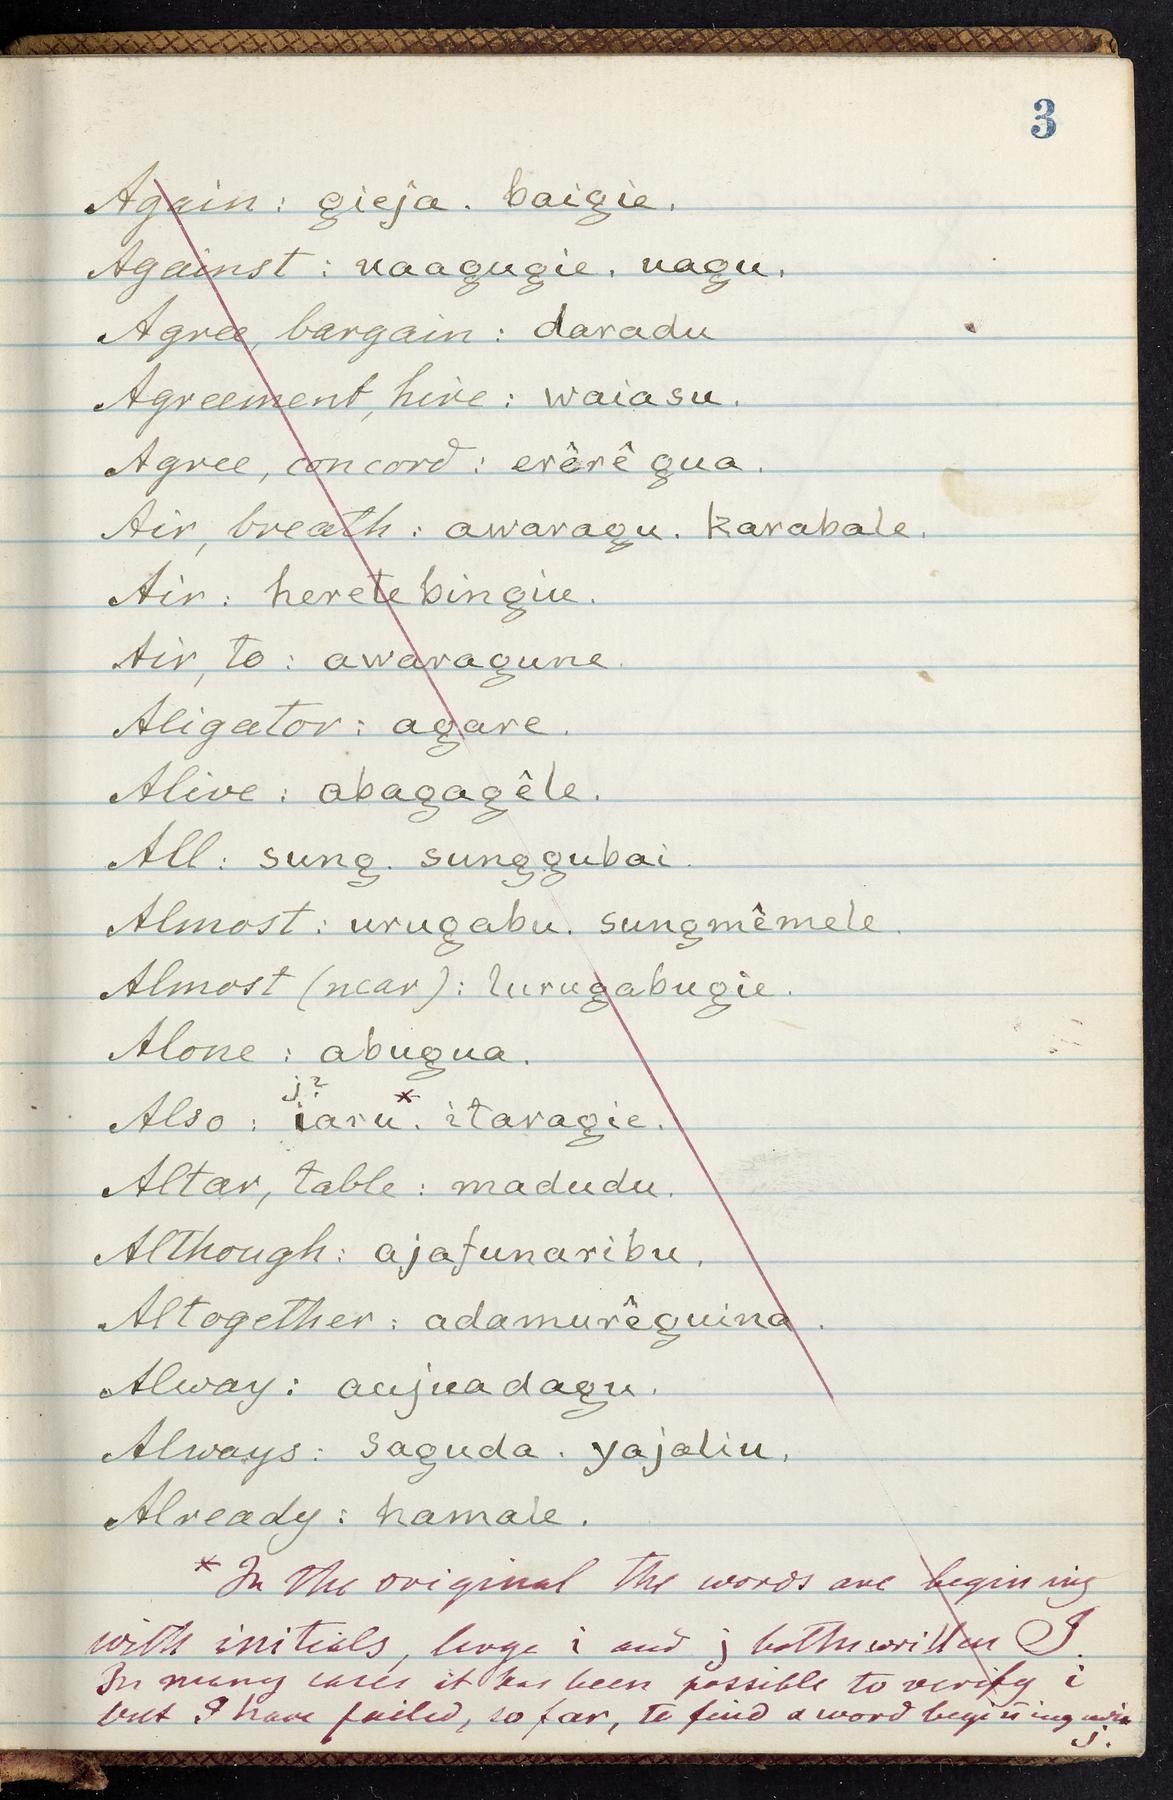 3
Again: gieja. baigie.
Against: naagugie. nagu.
Agree, bargain: daradu
Agreement, hire: waiasu.
Agree, concord: erêrê gua.
Air, breath: awaragu. karabale.
Air: heretebingiu.
Air, to: awaragune.
Aligator: agare.
Alive: abagagêle.
All: sung. sunggubai.
Almost: urugabu. sungmêmele.
Almost (near): lurugabugie.
Alone: abugua.
j?
Also: iaru*. itaragie.
Altar, table: madudu.
Although: ajafunaribu.
Altogether: adamurêguina.
Alway: aujuadagu.
Always: saguda. yajaliu.
Already: hamale.
* In the original the words are begining
with initials, large i and j both written I.
In many cases it has been possible to verify i
but I have failed, so far, to find a word begining with
j.